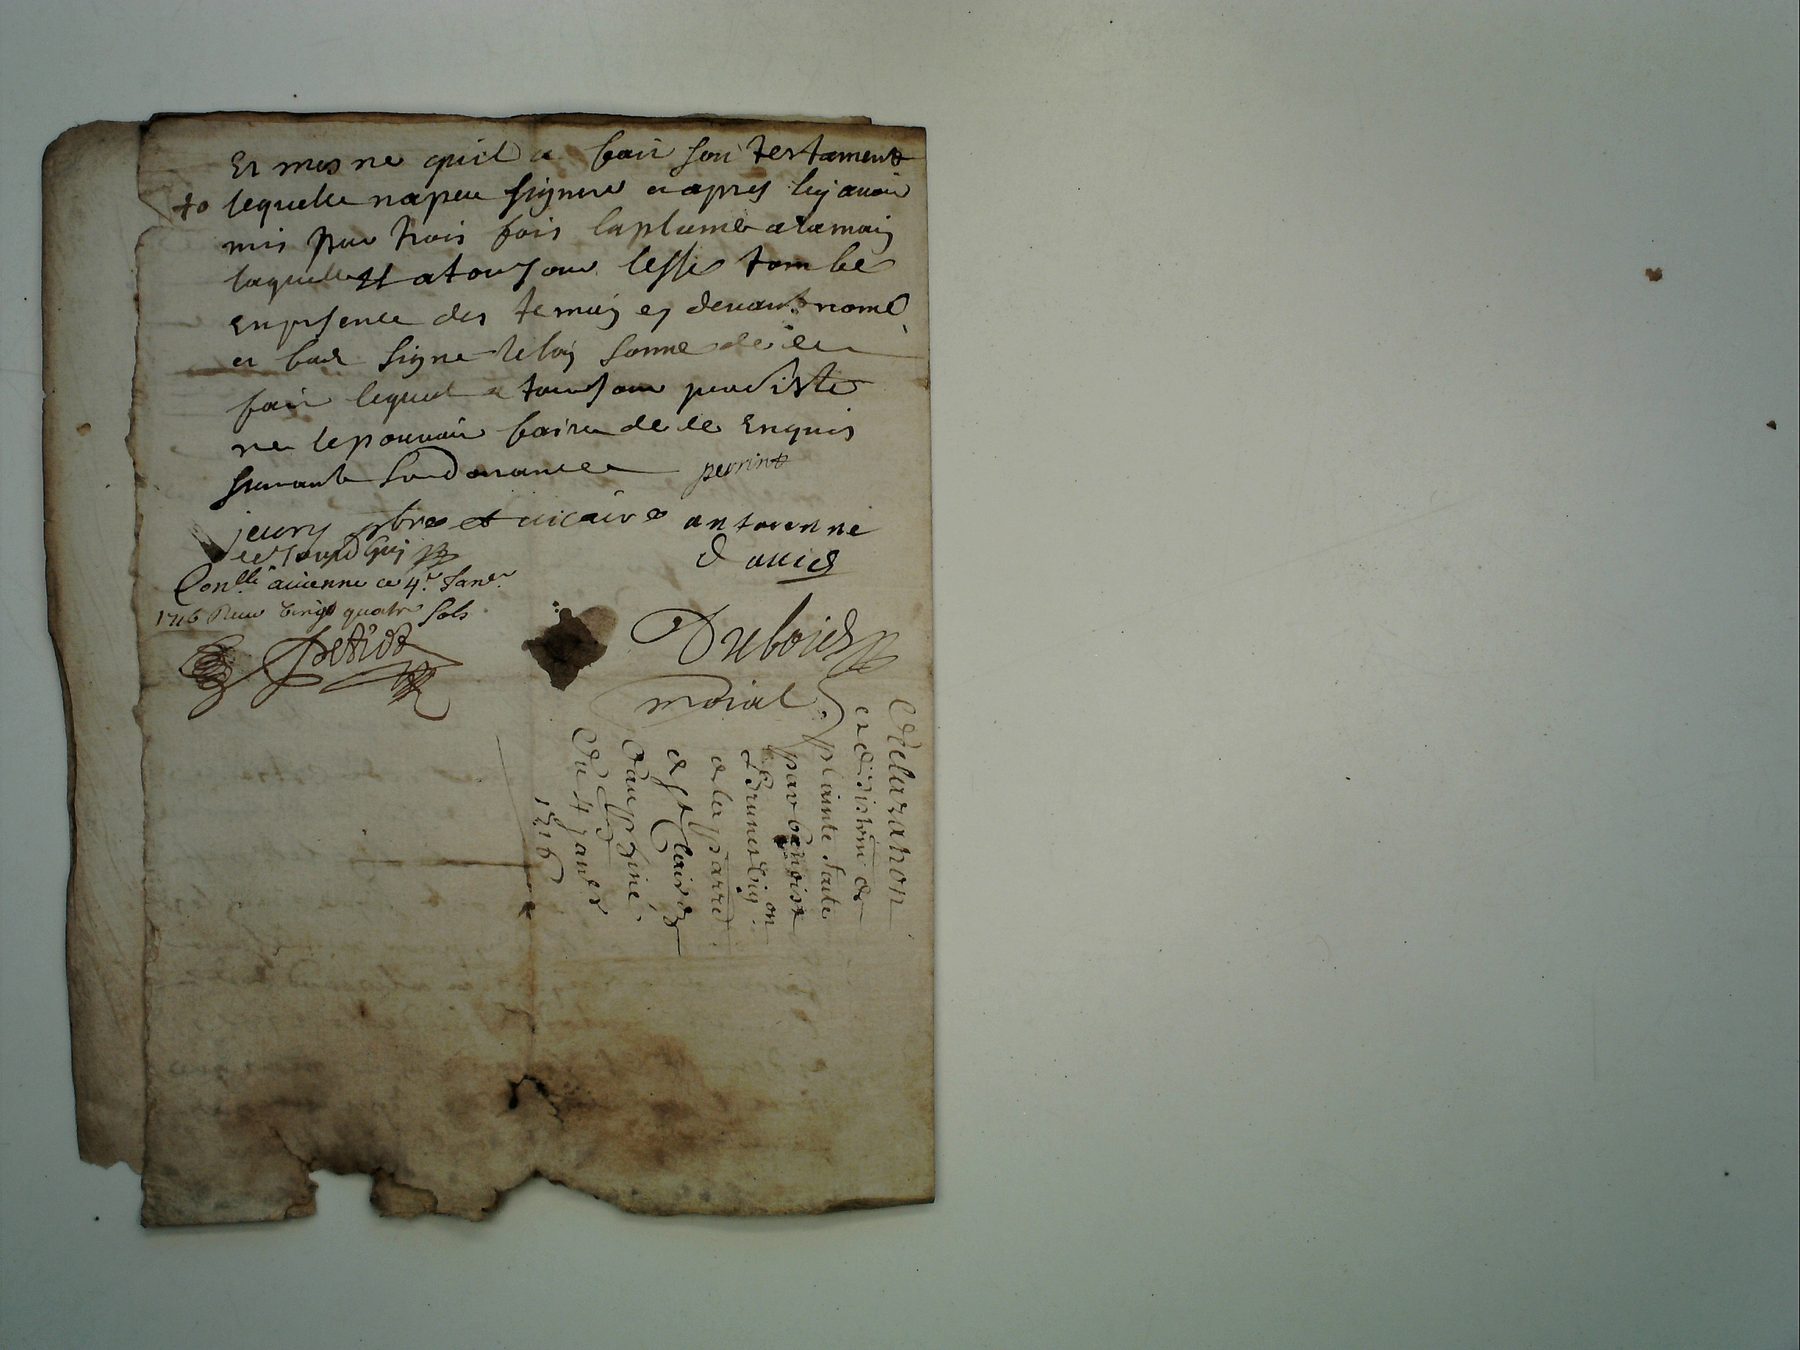 Et mesne quil a fait son testament
to lequelle napeu signere et apres luy avoir
mis par trois fois laplume alamain
laquelle atousjour lesse tombe
enpresence des temoin cy devant nomé
et
fait lequel a tousjour persiste
ne lepouvoir faire de ce enquis
suivant lordonance perrint
jeury pbre et vicaire antoienne
david
Conllé avienne ce 4e Janer
1716 Receu vingt quatre sols
Petitot
Dubois
moial
Declaration
et de
plainte faite
par benoist
Brunet
de la parre
de st Clair
Dauphiné
Du 4 Janer
1716